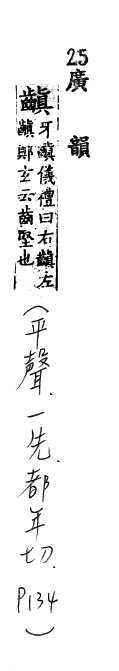 25廣韻
齻牙齻儀禮曰右齻左
齻鄭玄云齒堅也
(平聲.一先.都年切.P134)